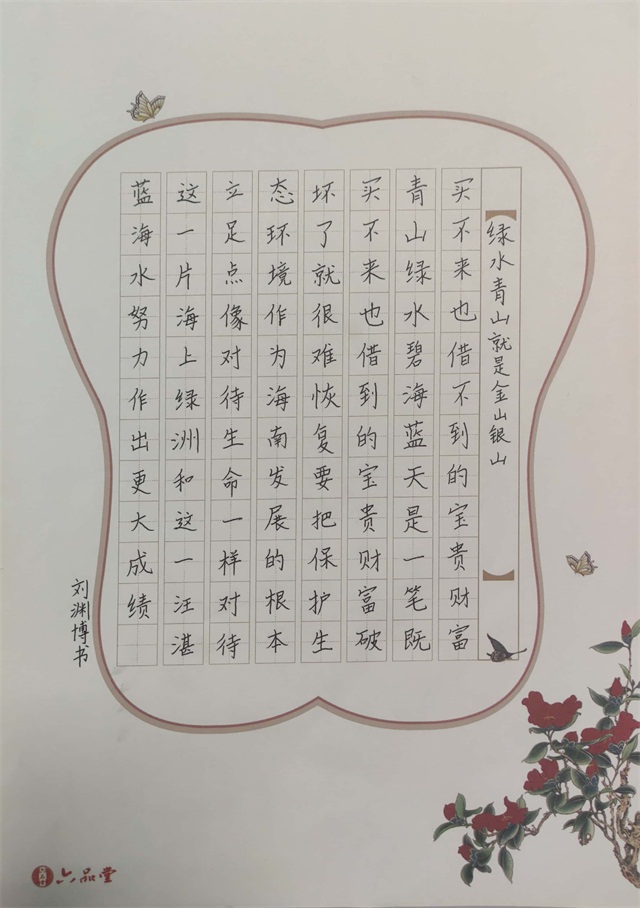 绿水青山就是金山银山
买不来也借不到的宝贵财富
青山绿水碧海蓝天是一笔既
买不来也借到的宝贵财富破
坏了就很难恢复要把保护生
态环境作为海南发展的根本
立足点像对待生命一样对待
这一片海上绿洲和这一汪湛
蓝海水努力作出更大成绩
刘渊博书
六品堂